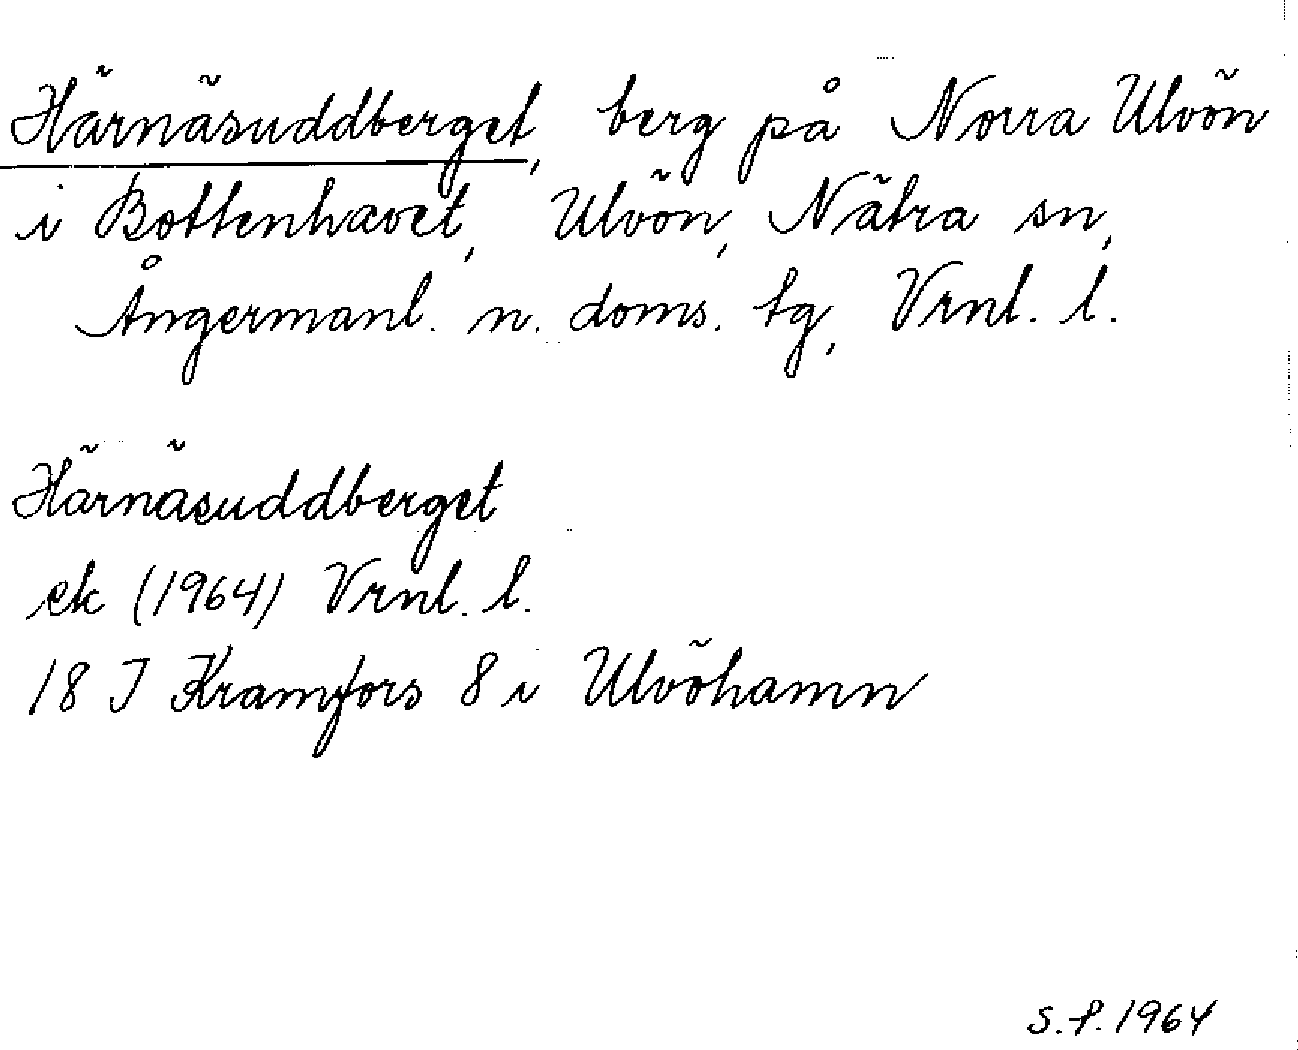 Härnäsuddberget, berg på Norra Ulvön
i Bottenhavet, Ulvön, Nätra sn,
Ångermanl. n. doms. tg, Vrnl. l.
Härnäsuddberget
ek (1964) Vrnl. l.
18 I Kramfors 8 i Ulvöhamn
S.P. 1964